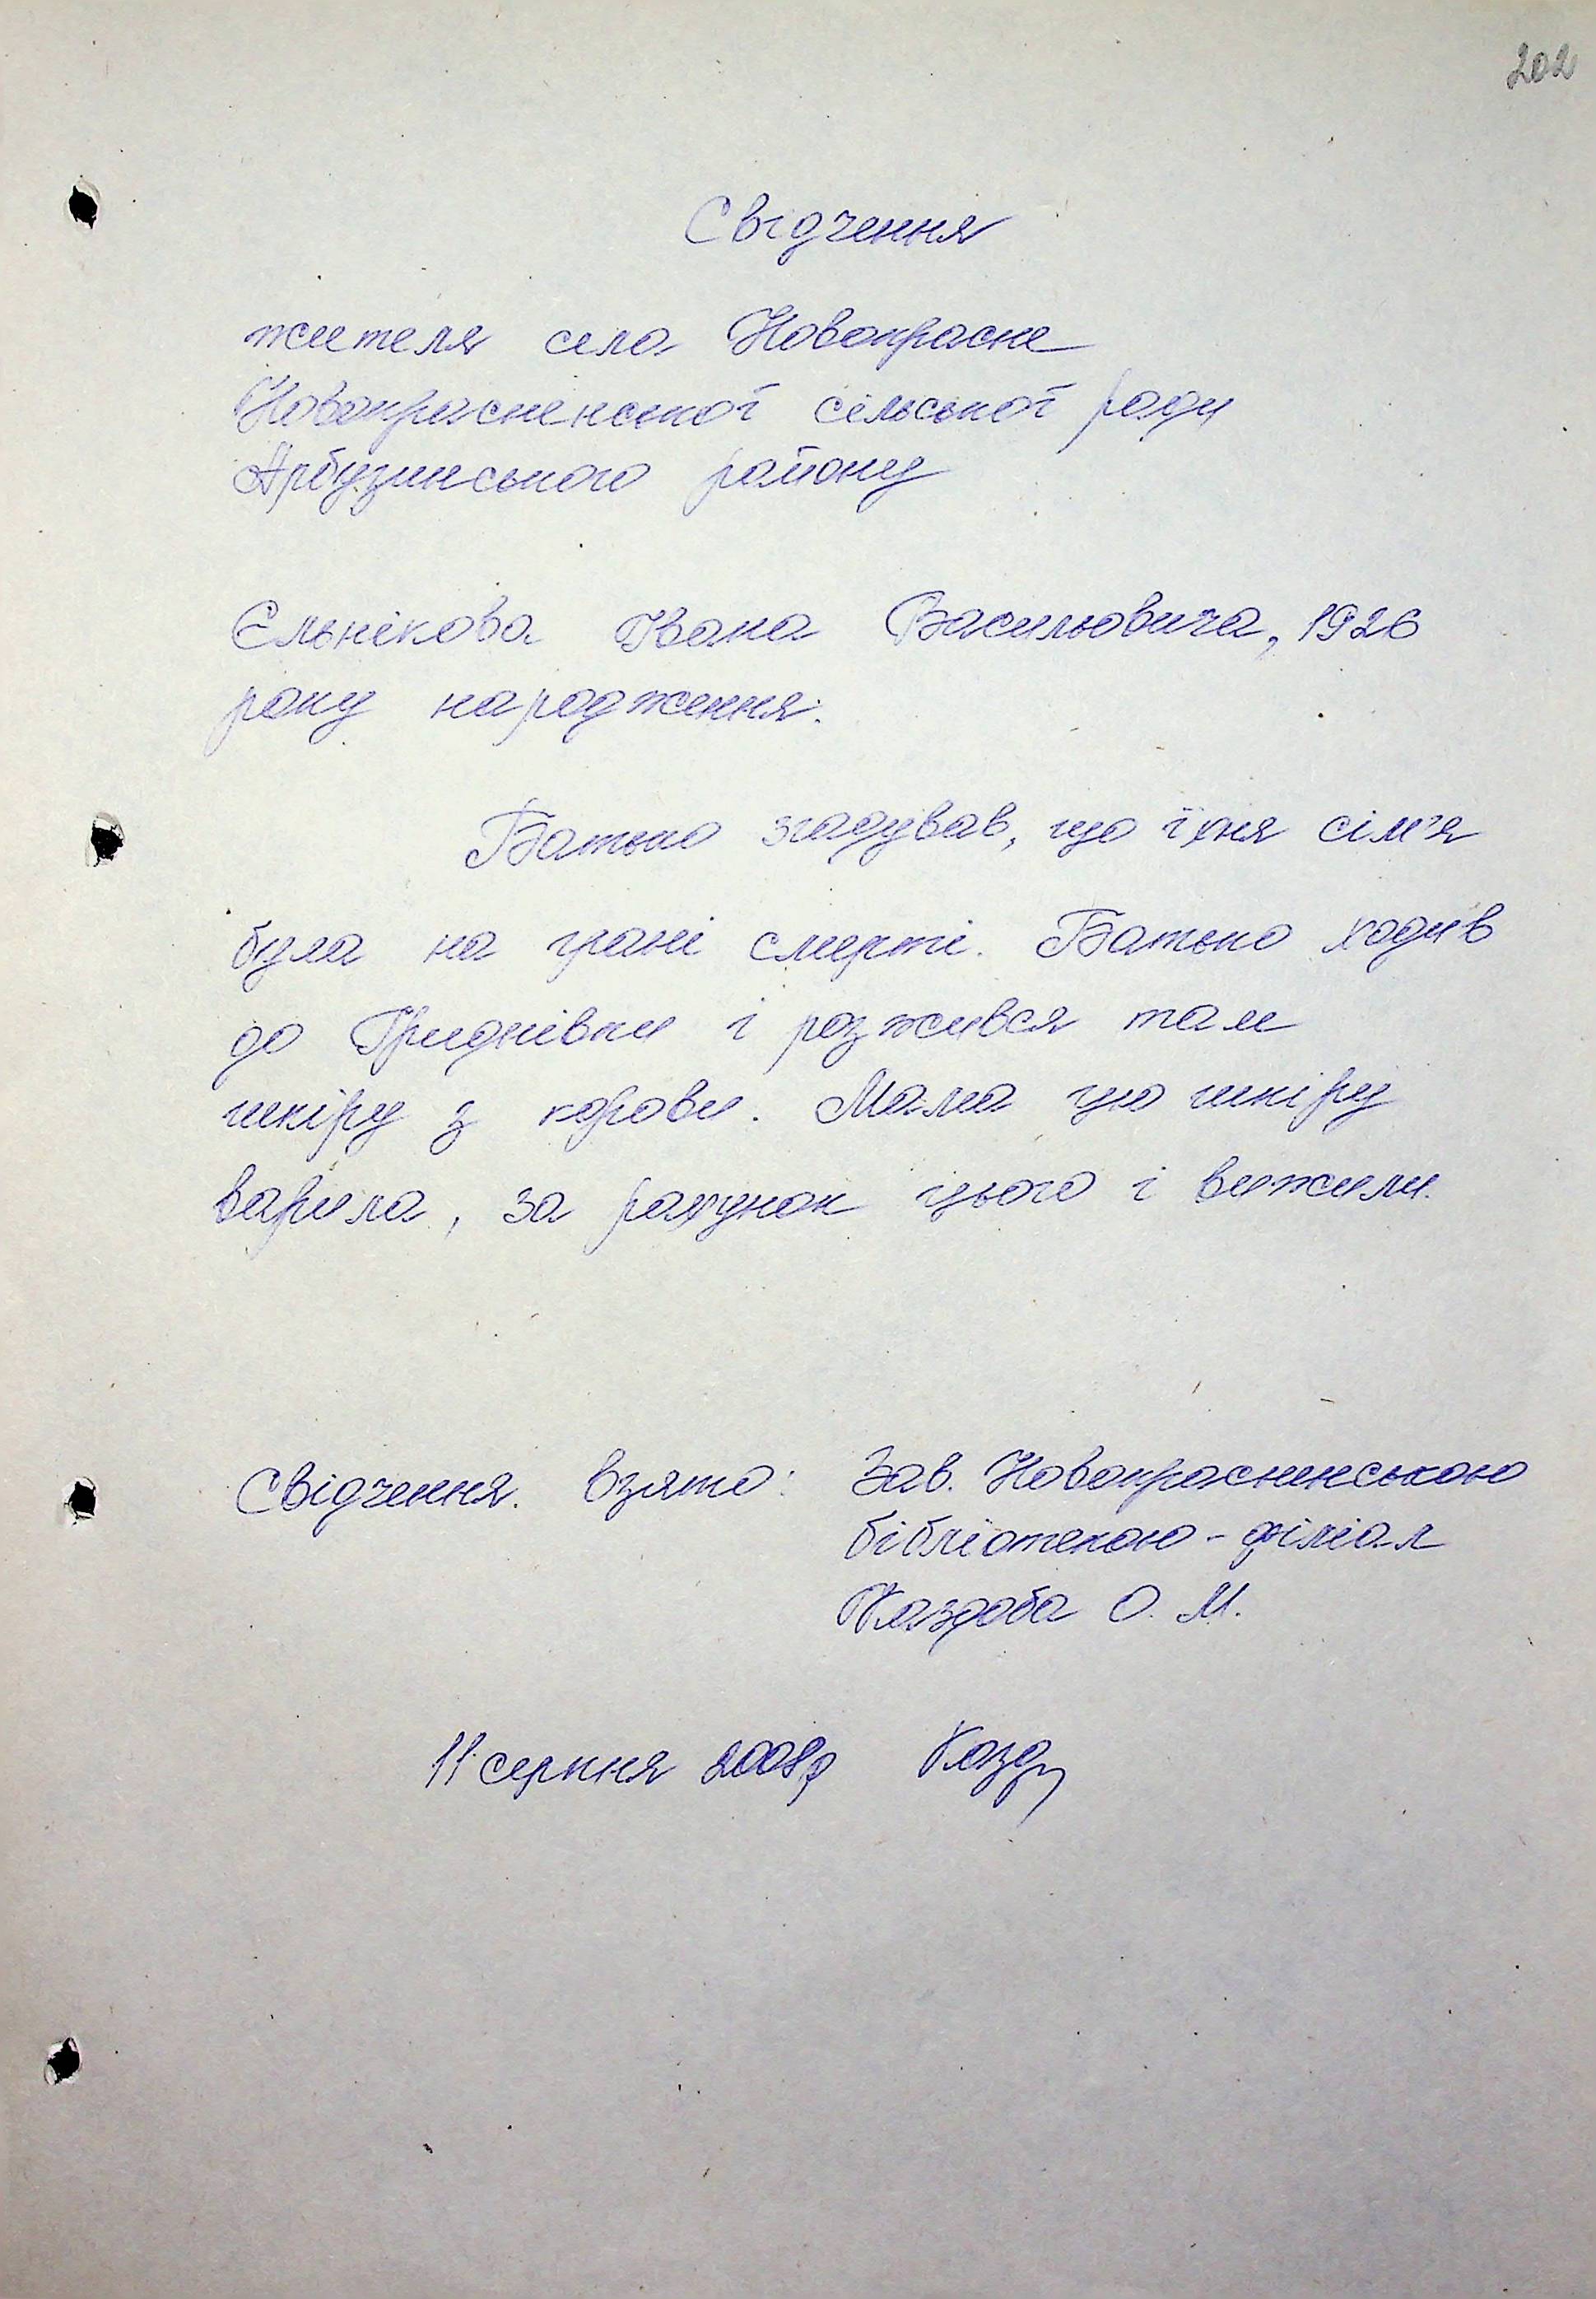 202
Свідчення
жителя села Новокрасне
Новокрасненської сільської ради
Арбузинського району
Єльнікова Івана Васильовича, 1926
року народження.
Батько згадував, що їхня сім'я
була на грані смерті. Батько ходив
до Гриднівки і розжився там
шкіру з корови. Мама цю шкіру
варила, за рахунок цього і вижили.
Свідчення взято: Зав. Новокрасненською
бібліотекою - філіал
Каздоба О. М.
11 серпня 2008р